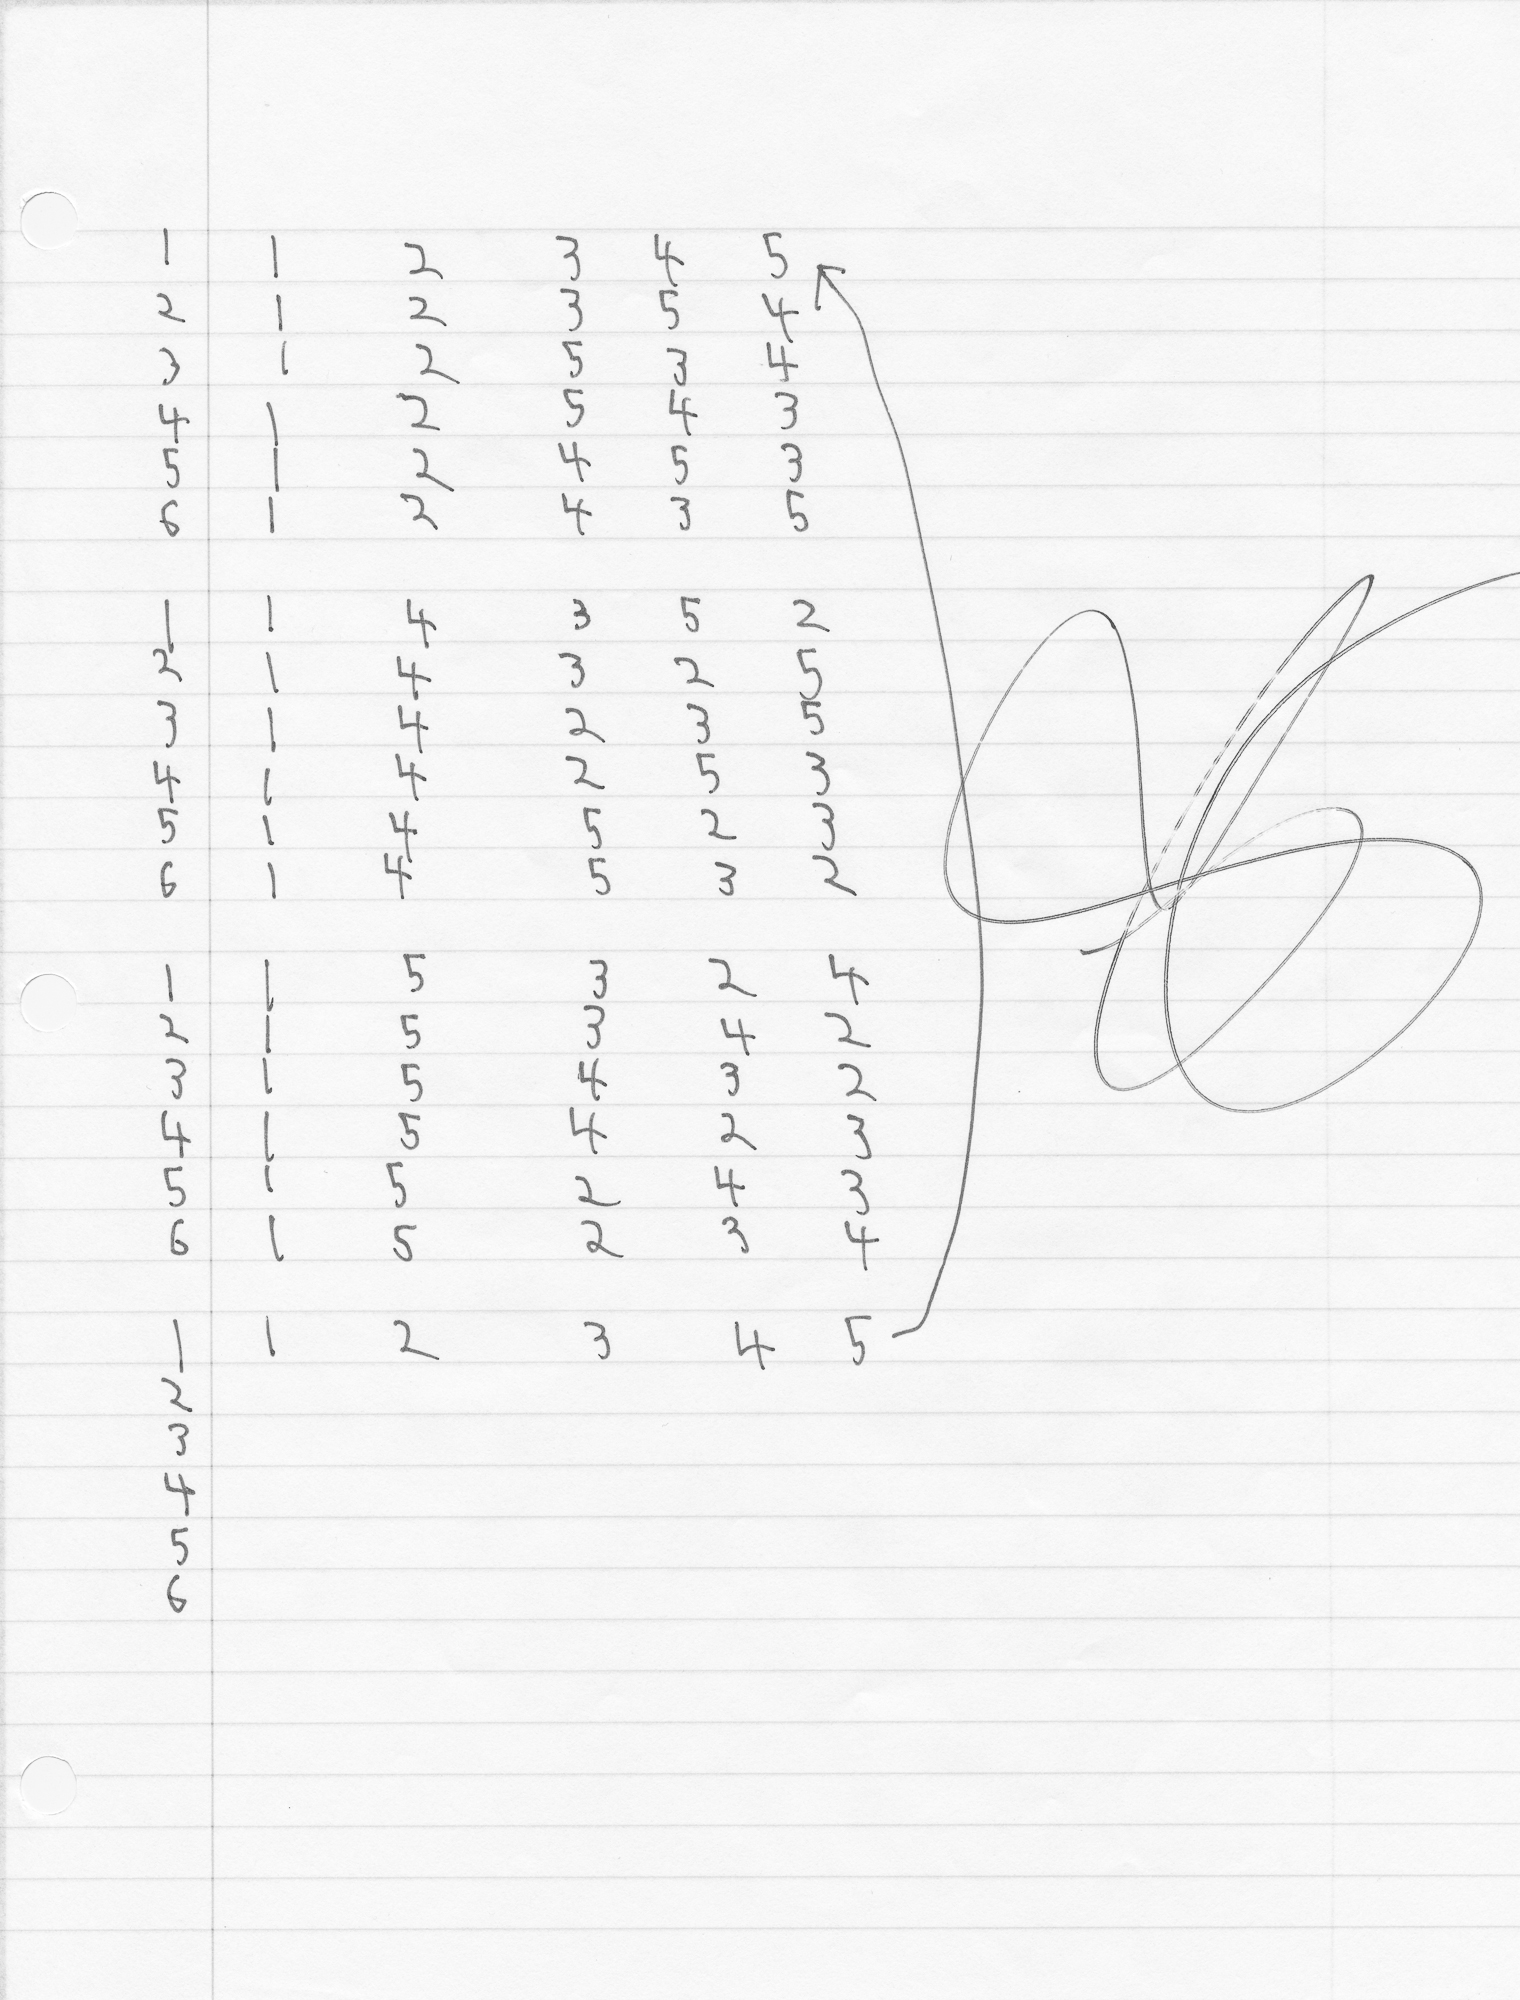 1 1 2 3 4 5
2 1 2 3 5 4
3 1 2 5 3 4
4 1 2 5 4 3
5 1 2 4 5 3
6 1 2 4 3 5
1 1 4 3 5 2
2 1 4 3 2 5
3 1 4 2 3 5
4 1 4 2 5 3
5 1 4 5 2 3
6 1 4 5 3 2
1 1 5 3 2 4
2 1 5 3 4 2
3 1 5 4 3 2
4 1 5 4 2 3
5 1 5 2 4 3
6 1 5 2 3 4
1 1 2 3 4 5
2
3
4
5
6